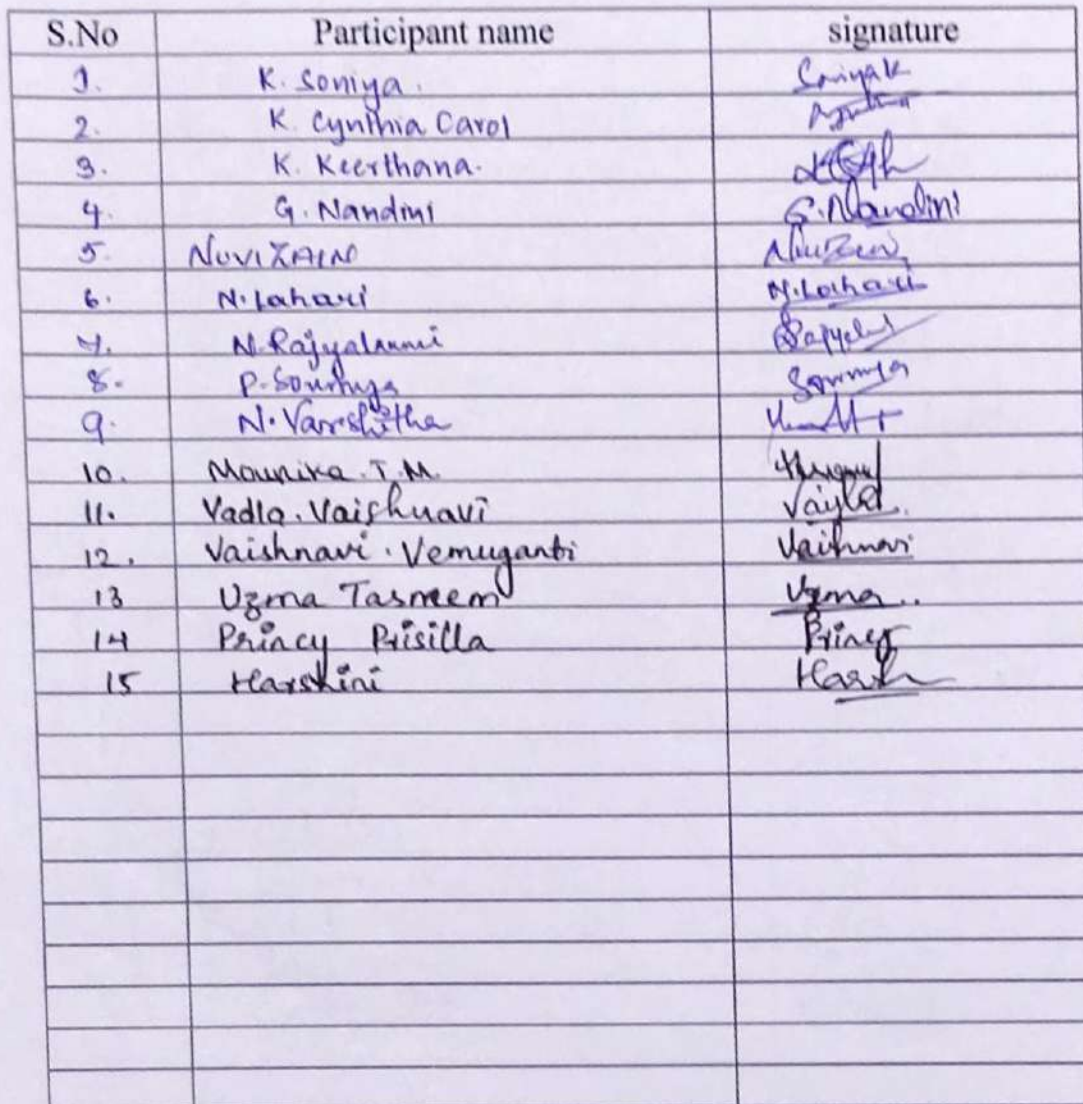 S.No Participant name signature
1. K. Soniya. Soniyak
2. K. Cynthia Carol
3. K. Keerthana.
4. G. Nandini G. Nandini
5. NUVIZAIN
6. N. Lahari N. Lahari
7. N. Rajyalaxmi
8. P. Soumya Soumya
9. N. Varshitha
10. Mounika. T. M.
11. Vadla. Vaishnavi
12. Vaishnavi. Vemuganti Vaishnavi
13 Uzma Tasneem Uzma..
14 Princy Prisilla Princy
15 Harshini Harsh